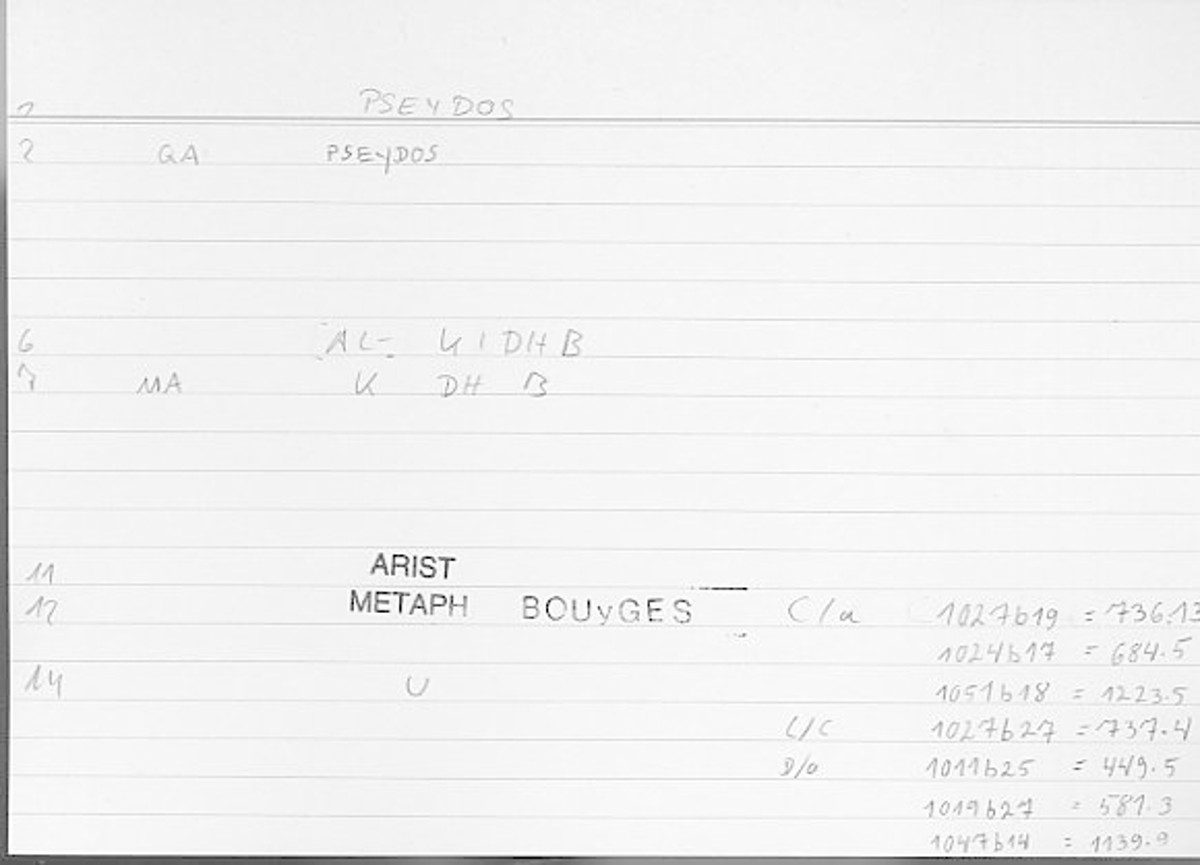 1 PSEYDOS
2 QA PSEYDOS
6 AL- KIDHB
7 MA K DH B
11 ARIST
12 METAPH BOUyGES C/a 1027b19 = 736.13
1024b17 = 684.5
14 U 1051b18 = 1223.5
C/C 1027b27 = 737.4
D/a 1011b25 = 449.5
1019b27 = 581.3
1047b14 = 1139.9